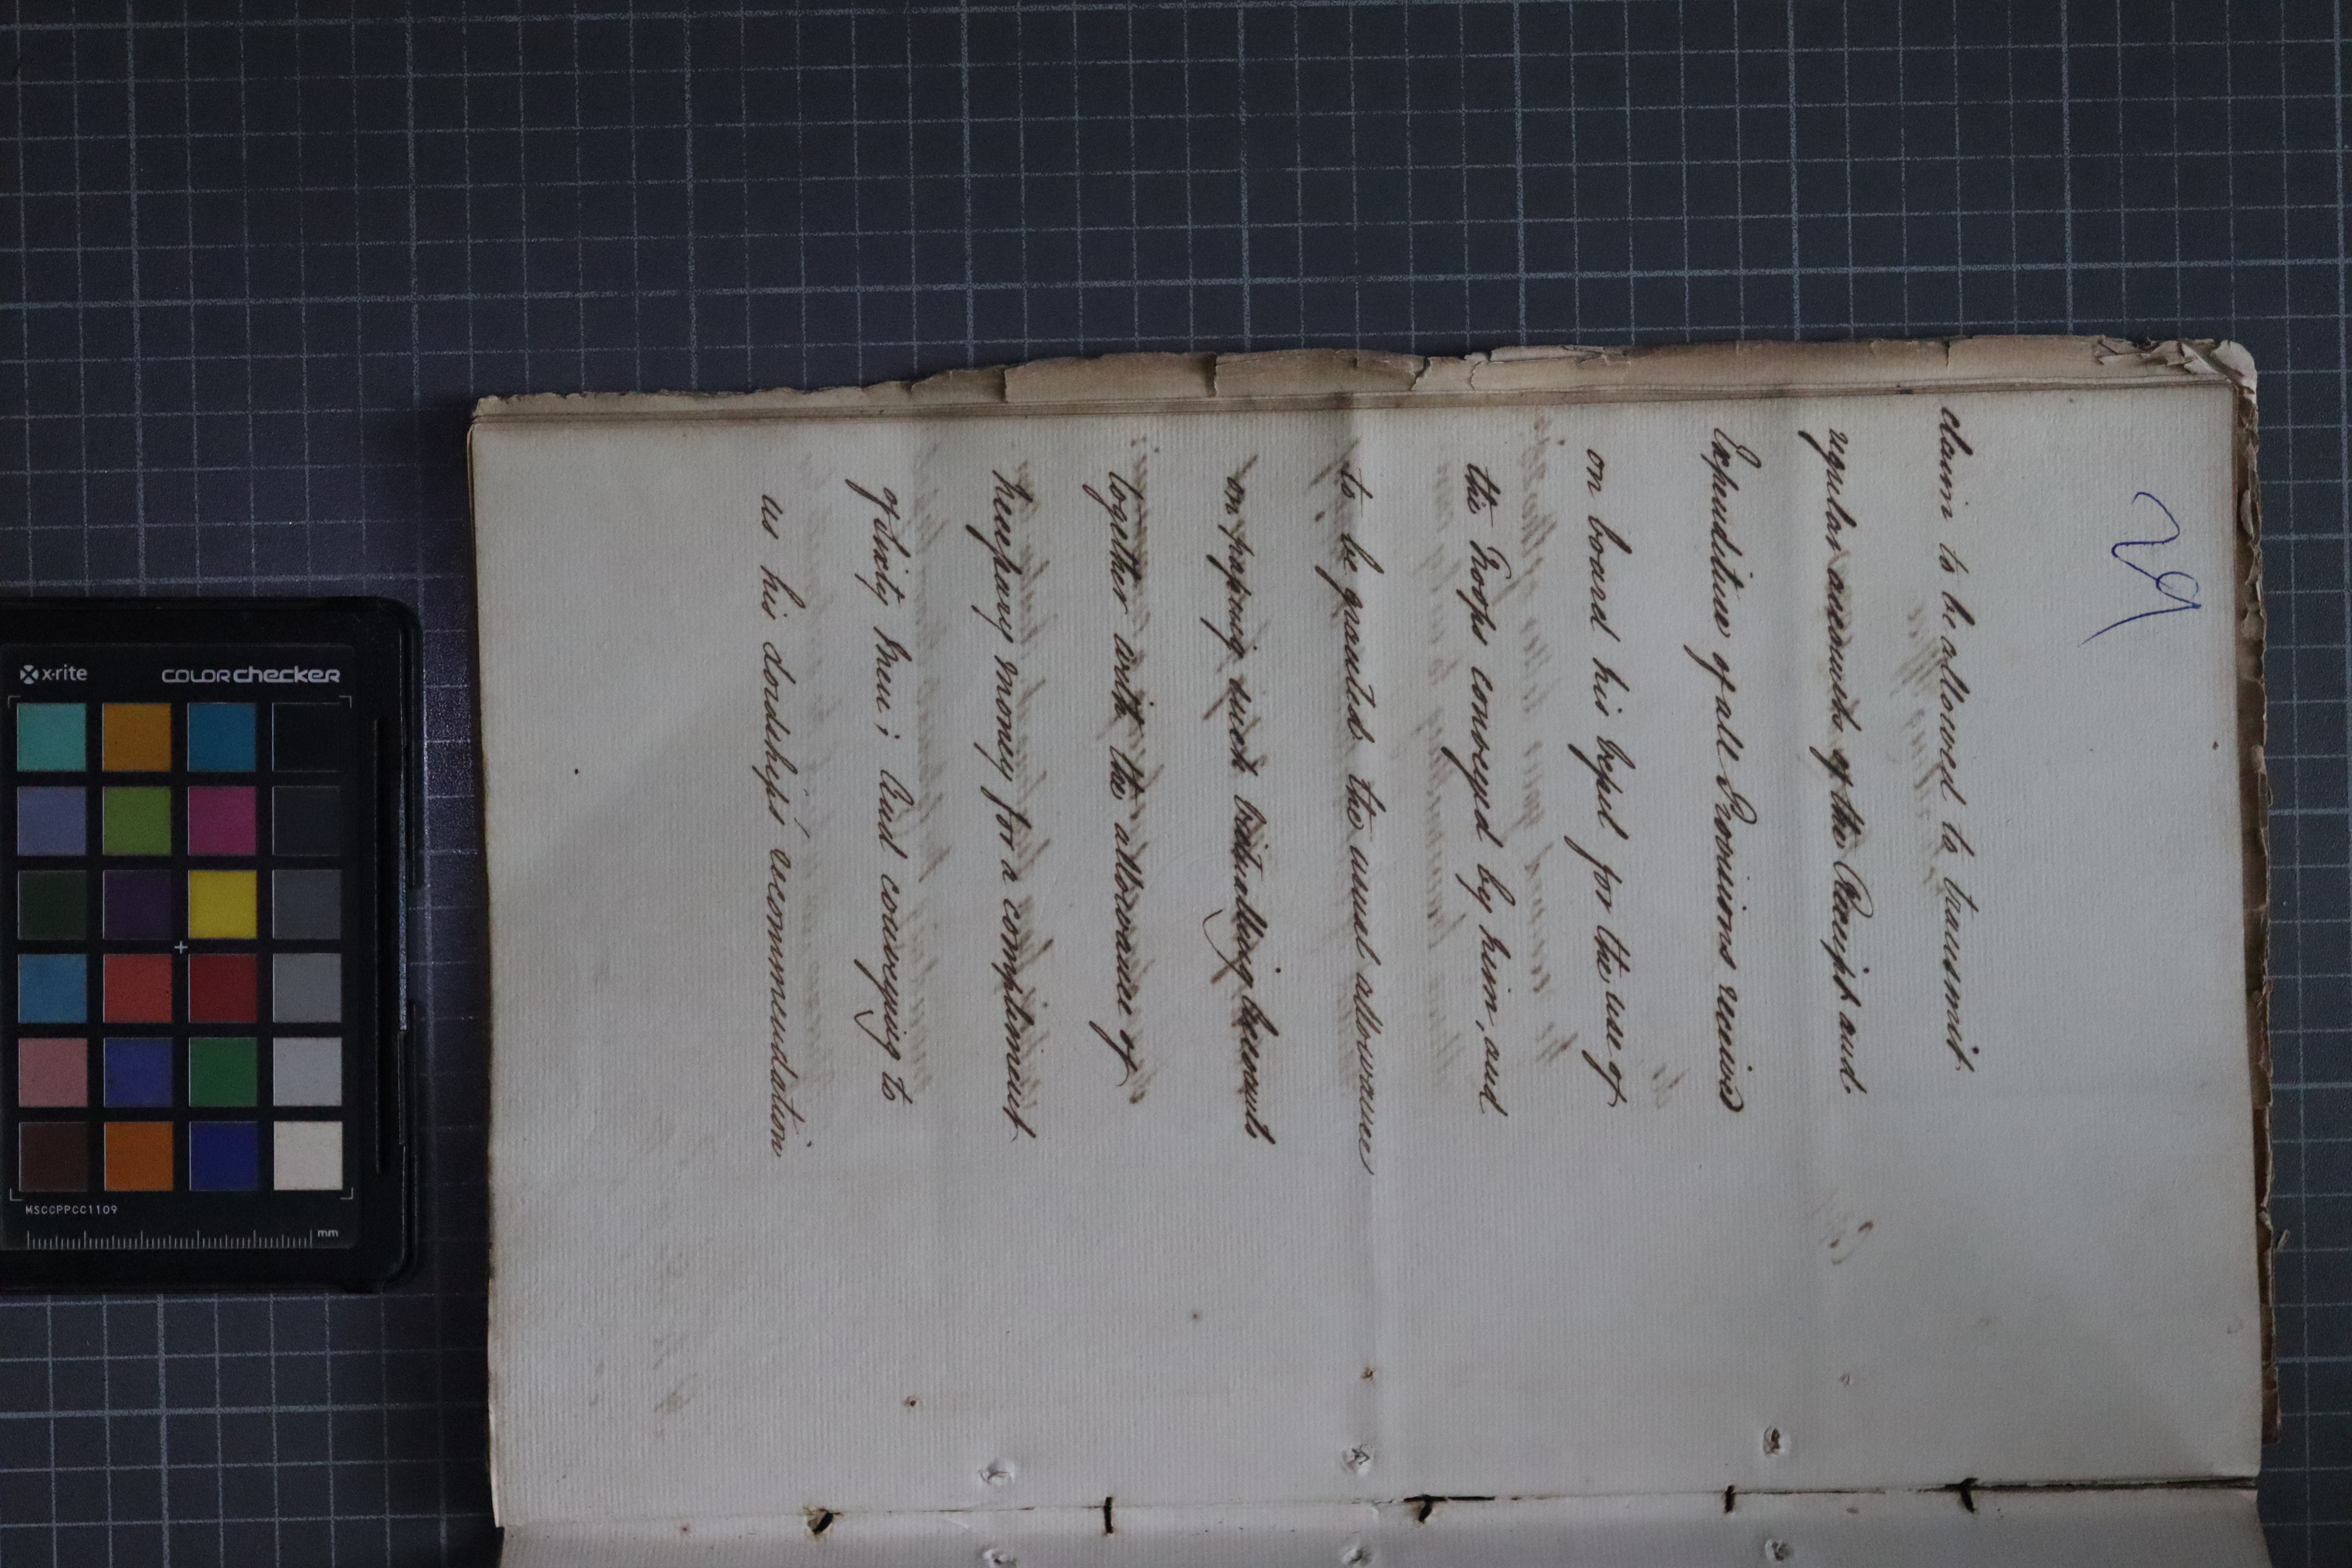 29
claim to be allowed to transmit
regular accounts of the Receipt and
Expenditure of all Provisions received
on board his Vessel for the use of
the Troops conveyed by him, and
to be granted the usual allowance
on passing such Victualling Accounts
together with the allowance of
Necessary money for a compliment
of sixty Men; And conveying to
us his Lordships recommendation
x-rite COLORchecker
MSCCPPCC1109
mm